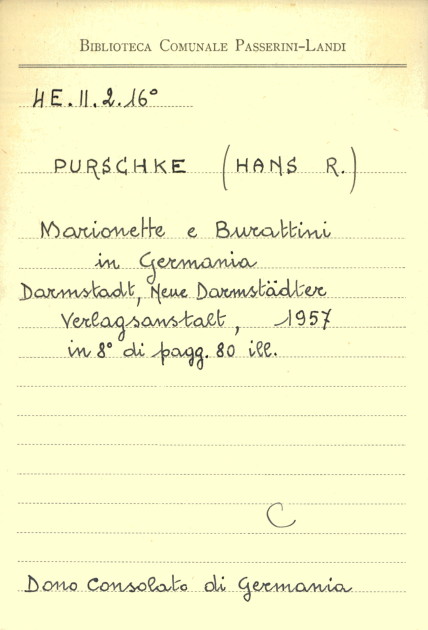 Biblioteca Comunale Passerini-Landi
4E.II.2.16°
PURSCHKE (HANS R.)
Marionette e Burattini
in Germania
Darmstadt, Neue Darmstädter
Verlagsanstalt, 1957
in 8° di pagg. 80 ill.
C
Dono Consolato di Germania